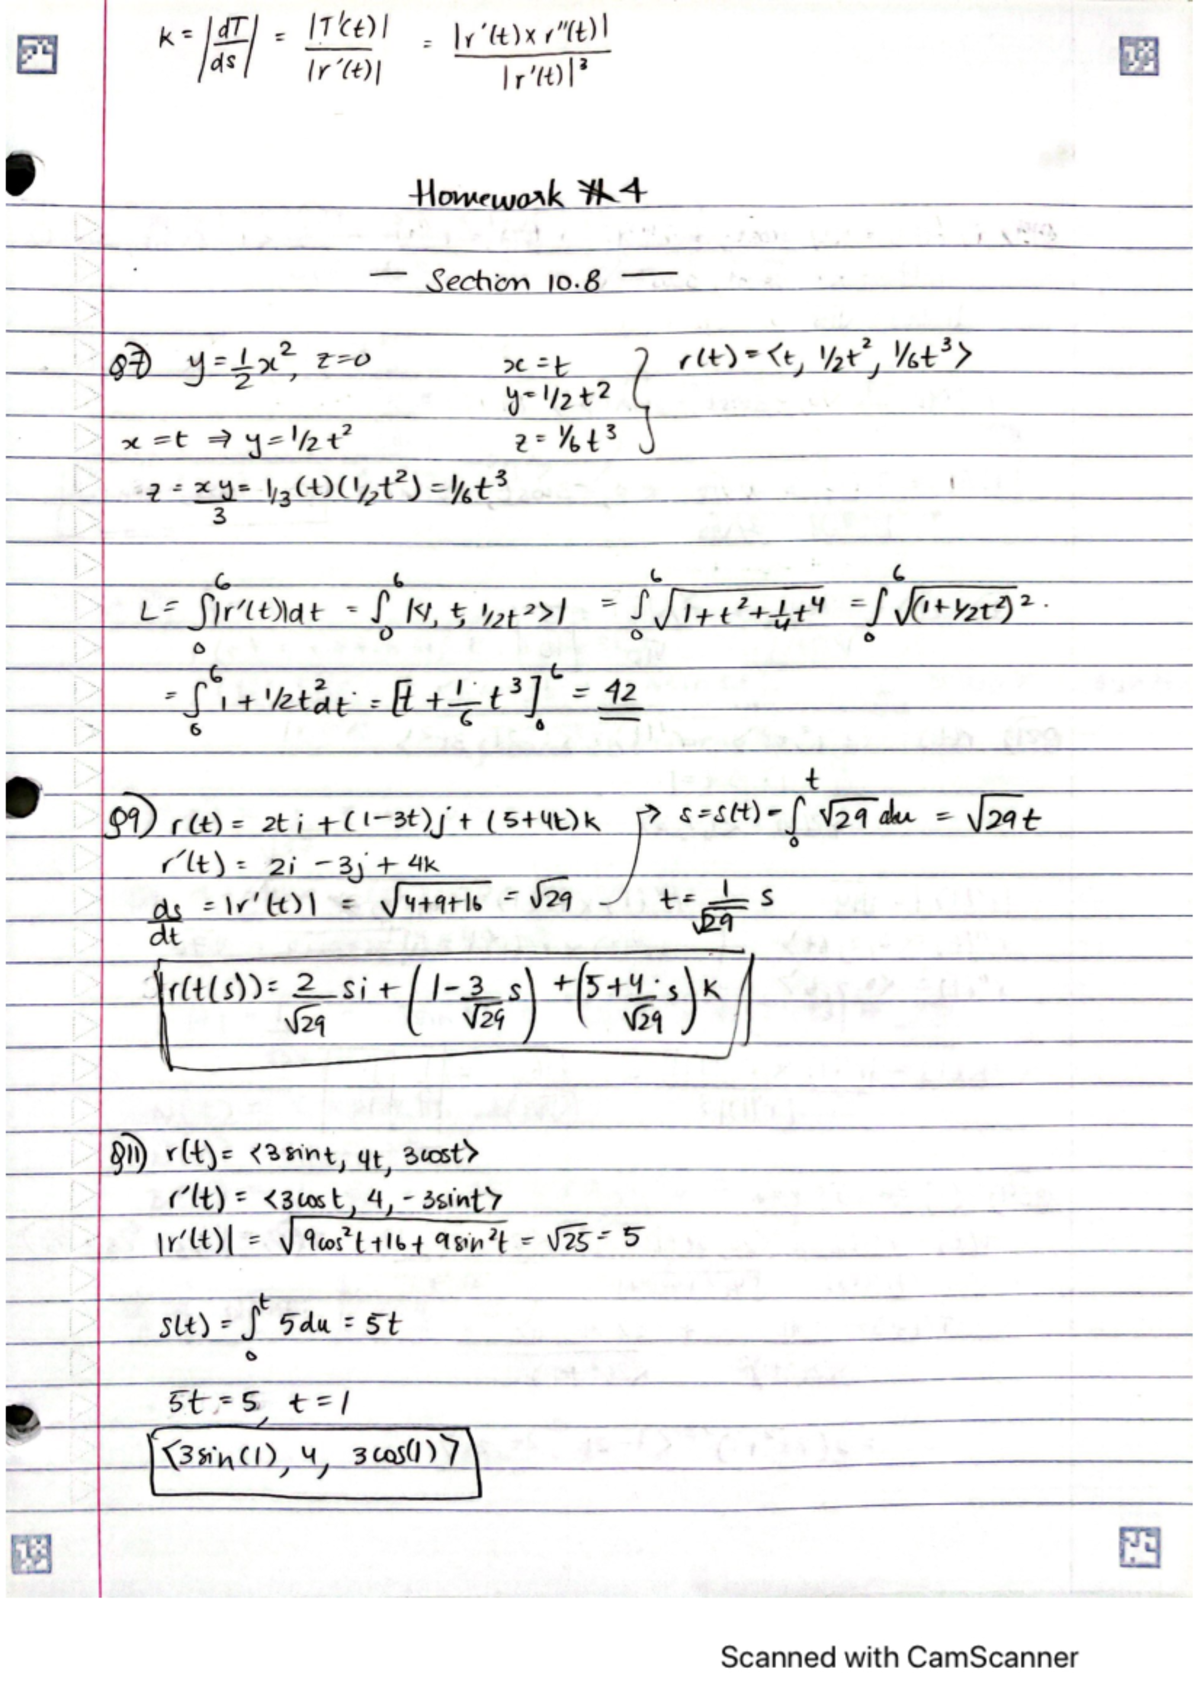 K = |dT/ds| = |T'(t)|/|r'(t)| = |r'(t) x r"(t)|/|r'(t)|³
Homework #4
— Section 10.8 —
Q7) y = 1/2 x², z=0
x = t ⇒ y = 1/2 t²
z = xy/3 = 1/3 (t)(1/2t²) = 1/6t³
x = t
y = 1/2 t²
z = 1/6 t³
} r(t) = <t, 1/2t², 1/6t³>
L = ∫₀⁶ |r'(t)|dt = ∫₀⁶ |<1, t, 1/2t²>| = ∫₀⁶ √(1+t²+1/4t⁴) = ∫₀⁶ √((1+1/2t²)²).
= ∫₀⁶ 1+1/2t²dt = [t + 1/6 t³]₀⁶ = 42
Q9) r(t) = 2ti + (1-3t)j + (5+4t)k → s=s(t) = ∫₀ᵗ √29 du = √29t
r'(t) = 2i - 3j + 4k
ds/dt = |r'(t)| = √(4+9+16) = √29 t = 1/√29 s
r(t(s)) = 2/√29 si + (1 - 3/√29 s) + (5 + 4/√29 s) k
Q11) r(t) = <3sint, 4t, 3cost>
r'(t) = <3cost, 4, -3sint>
|r'(t)| = √(9cos²t+16+9sin²t) = √25 = 5
s(t) = ∫₀ᵗ 5du = 5t
5t = 5, t = 1
<3sin(1), 4, 3cos(1)>
Scanned with CamScanner